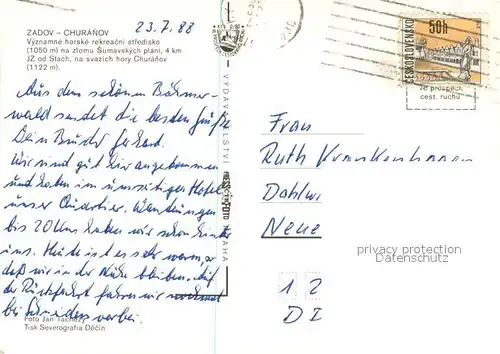 23.7.88
ZADOV – CHURÁŇOV
Významné horské rekreační středisko
(1050 m) na zlomu Šumavských plání, 4 km
JZ od Stach, na svazích hory Churáňov
(1122 m).
Aus dem schönen Böhmer-
wald sendet die besten Grüße
Dein Bruder
Wir sind gut hier angekommen
und haben im Hotel
unser Quartier. Wanderungen
bis 20 km haben wir schon hinter
uns. Heute ist es sehr warm, so
daß wir in der Nähe bleiben. Auf
der Rückfahrt fahren wir nochmal
bei vorbei.
Foto Jan Tachezy
Tisk Severografia Děčín
VYDAVATELSTVÍ
PRAHA
ČESKOSLOVENSKO
50h
Ve prospěch
cest. ruchu
Frau
Ruth
Neue
privacy protection
Datenschutz
1 2
DI